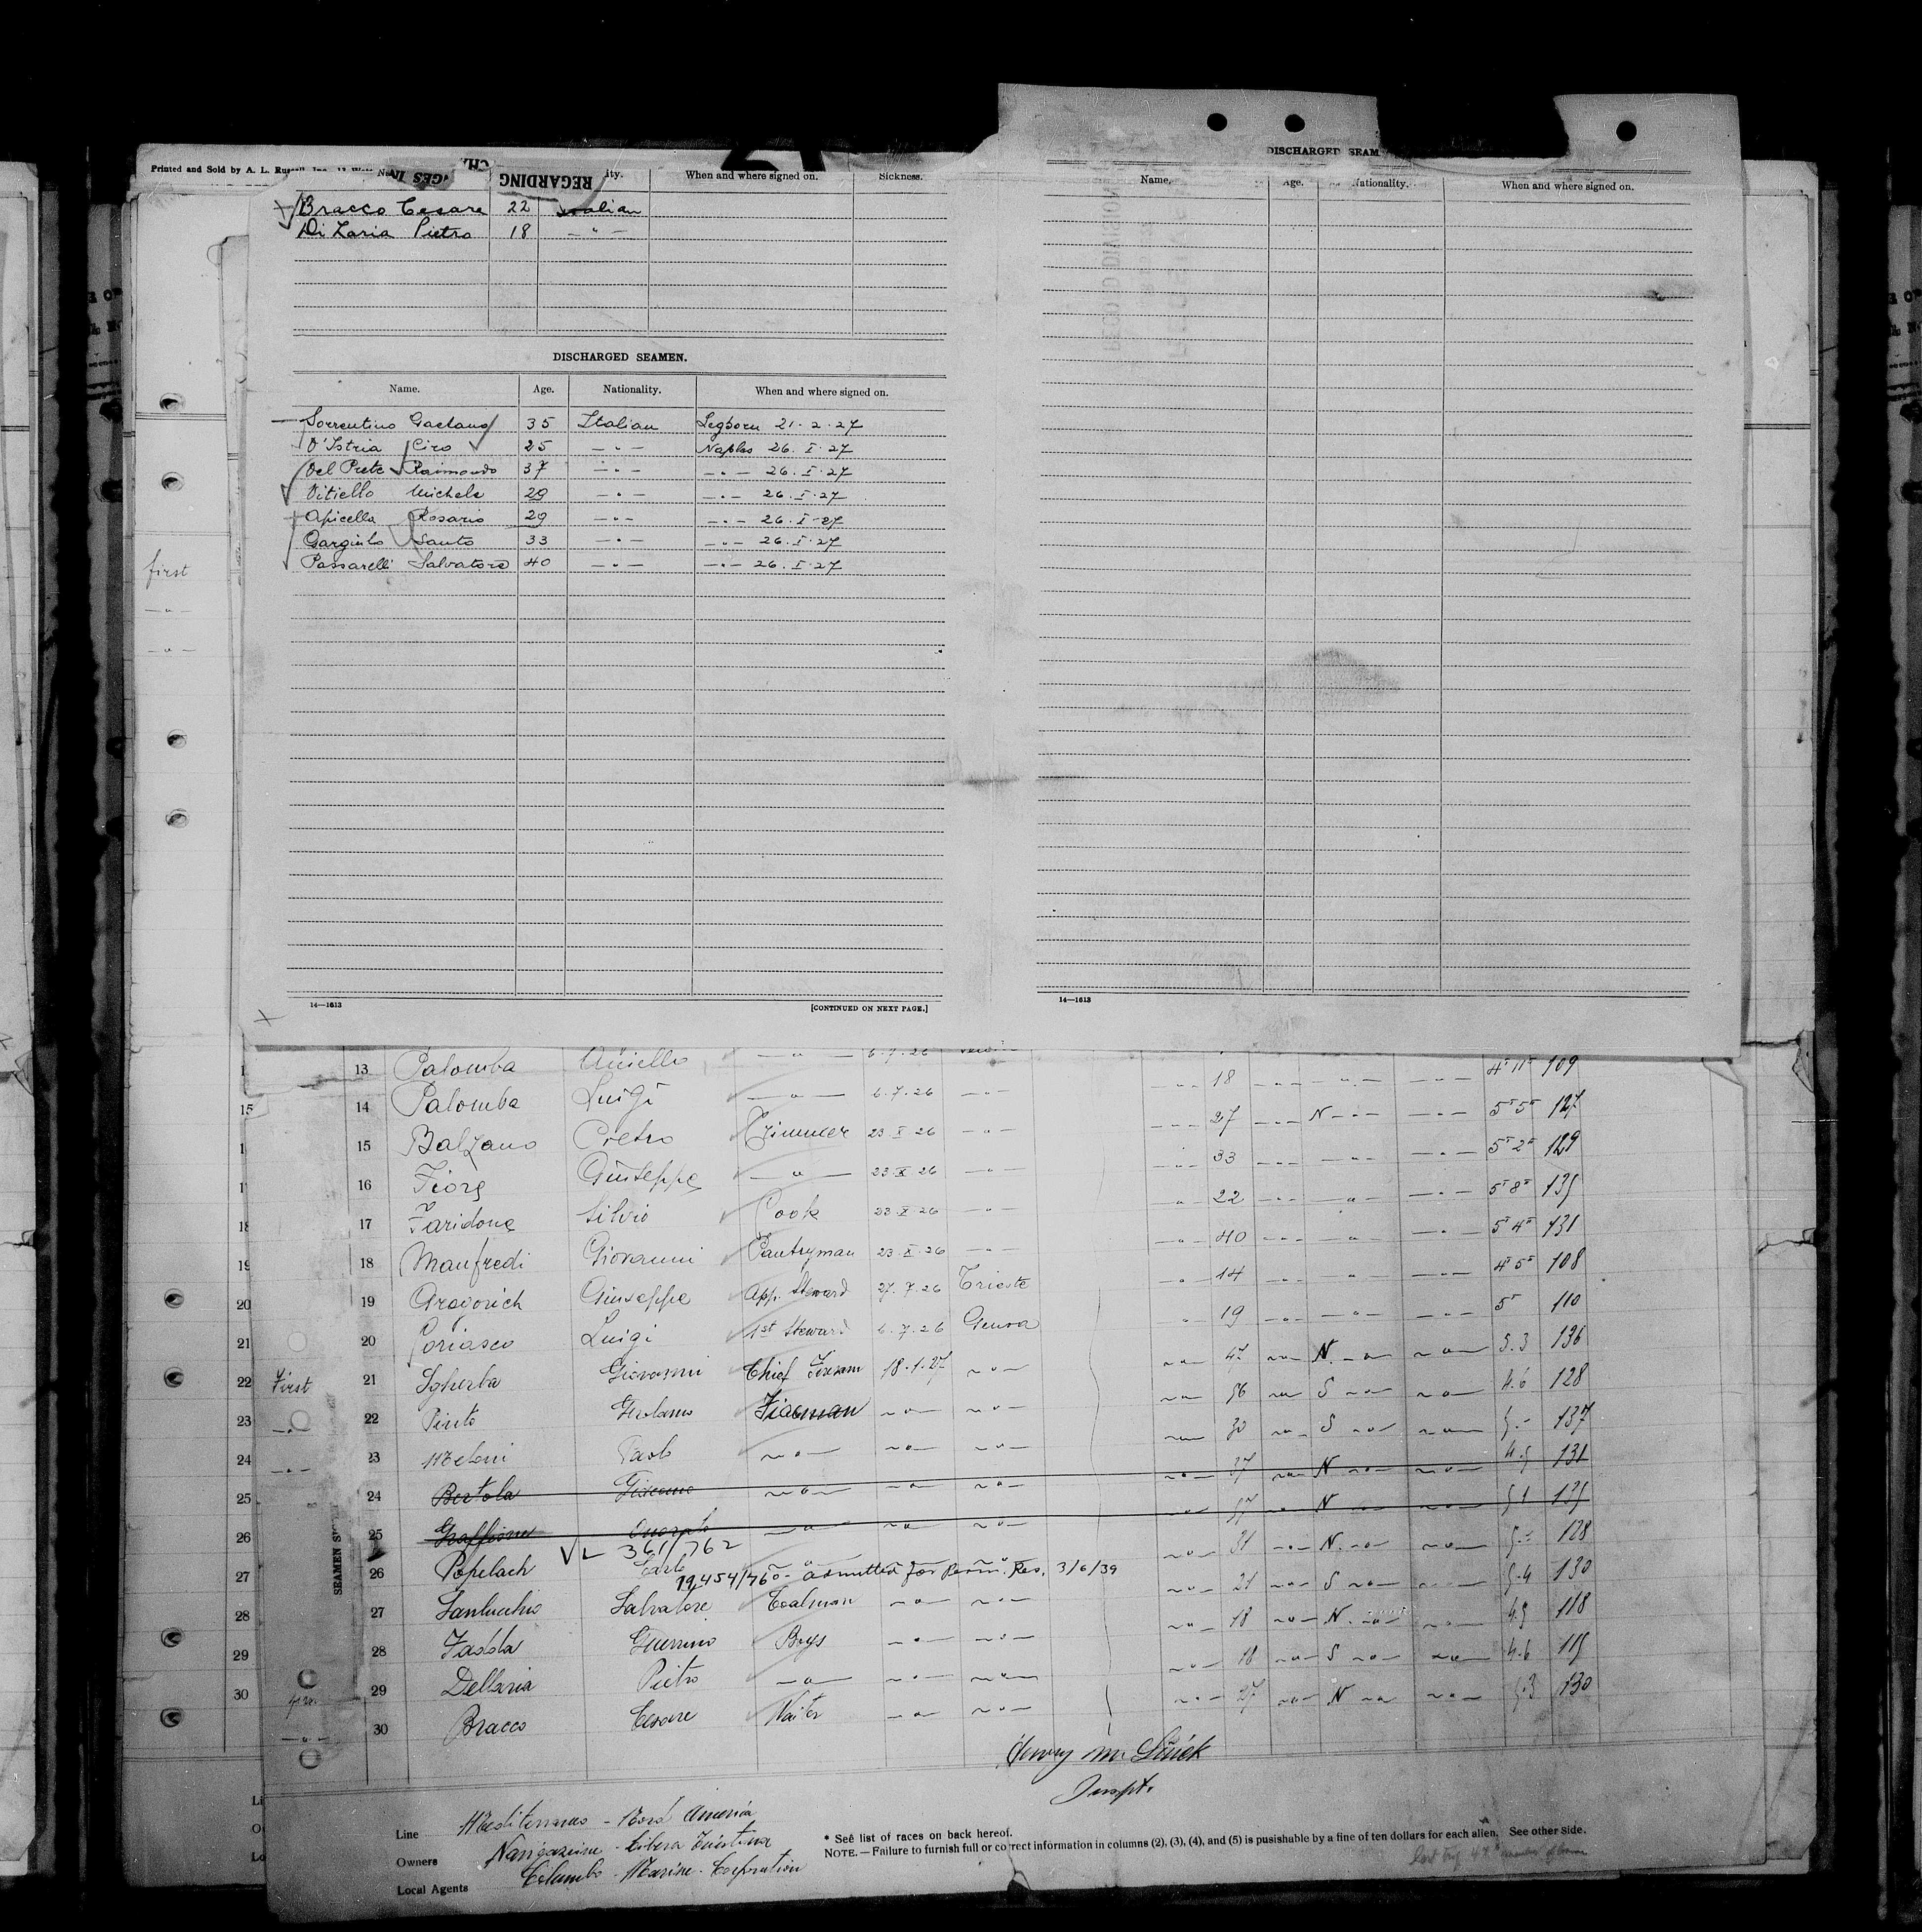 Printed and Sold by A. L.
REGARDING
When and where signed on.
Sickness.
Bracco Cesare 22 Italian
Di Laria Pietro 18 — " —
DISCHARGED SEAMEN.
Name. Age. Nationality. When and where signed on.
Sorrentino Gaetano 35 Italian Leghorn 21.2.27
D'Istria Ciro 25 — " — Naples 26.I.27
Del Prete Raimondo 37 — " — — " — 26.I.27
Vitiello Michele 29 — " — — " — 26.I.27
Apicella Rosario 29 — " — — " — 26.I-27
Gargiulo Santo 33 — " — — " — 26.I.27
Passarelli Salvatore 40 — " — — " — 26.I.27
14—1613
[CONTINUED ON NEXT PAGE.]
DISCHARGED SEAM
Name. Age. Nationality. When and where signed on.
14—1613
first
— " —
— " —
13 Palomba Aniello — " — 6.7.26 — " — 18 — " — — " — — " — 4' 11" 109
14 Palomba Luigi — " — 6.7.26 — " — 27 — " — N — " — — " — 5' 5" 127
15 Balzano Pietro Trimmer 23 X 26 — " — 33 — " — — " — — " — 5' 2" 129
16 Fiore Giuseppe — " — 23 X 26 — " — 22 — " — — " — — " — 5' 8" 135
17 Faridone Silvio Cook 23 X 26 — " — 40 — " — — " — — " — 5' 4" 131
18 Manfredi Giovanni Pantryman 23.X.26 — " — 14 — " — — " — — " — 4' 5" 108
19 Giuseppe App. Steward 27.7.26 Trieste 19 — " — — " — — " — 5' 110
20 Luigi 1st Steward 6.7.26 Genoa 47 — " — N. — " — — " — 5.3 136
21 Sgherba Giovanni Chief Fireman 18.1.27 — " — 56 — " — S — " — — " — 4.6 128
22 Pinto Girolamo Fireman — " — — " — 30 — " — S — " — — " — 5.- 137
23 Meloni Paolo — " — — " — — " — 37 — " — N — " — — " — 4.9 131
24 Bertola Giacomo — " — — " — — " — 37 — " — N — " — — " — 5.1 135
25 Graffione Onorato — " — — " — — " — 31 — " — N. — " — — " — 128
VL 361/762
26 Popelach Carlo — " — — " — — " — 21 — " — S — " — — " — 5.4 130
79,454/760 - admitted for Perm. Res. 3/6/39
27 Santucchio Salvatore Coalman — " — — " — 18 — " — N. — " — — " — 4.9 118
28 Fadda Guerrino Boys — " — — " — 18 — " — S — " — — " — 4.6 115
29 Dellaria Pietro — " — — " — — " — 27 — " — N — " — — " — 5.3 130
30 Bracco Cesare Waiter — " — — " —
First
15
18
19
20
21
22
23
24
25
26
27
28
29
30
Inspt.
Line Mediterraneo - Nord America
Owners Navigazione - Libera Triestina
Local Agents Columbo - Marine - Corporation
* See list of races on back hereof.
NOTE.—Failure to furnish full or correct information in columns (2), (3), (4), and (5) is pusishable by a fine of ten dollars for each alien. See other side.